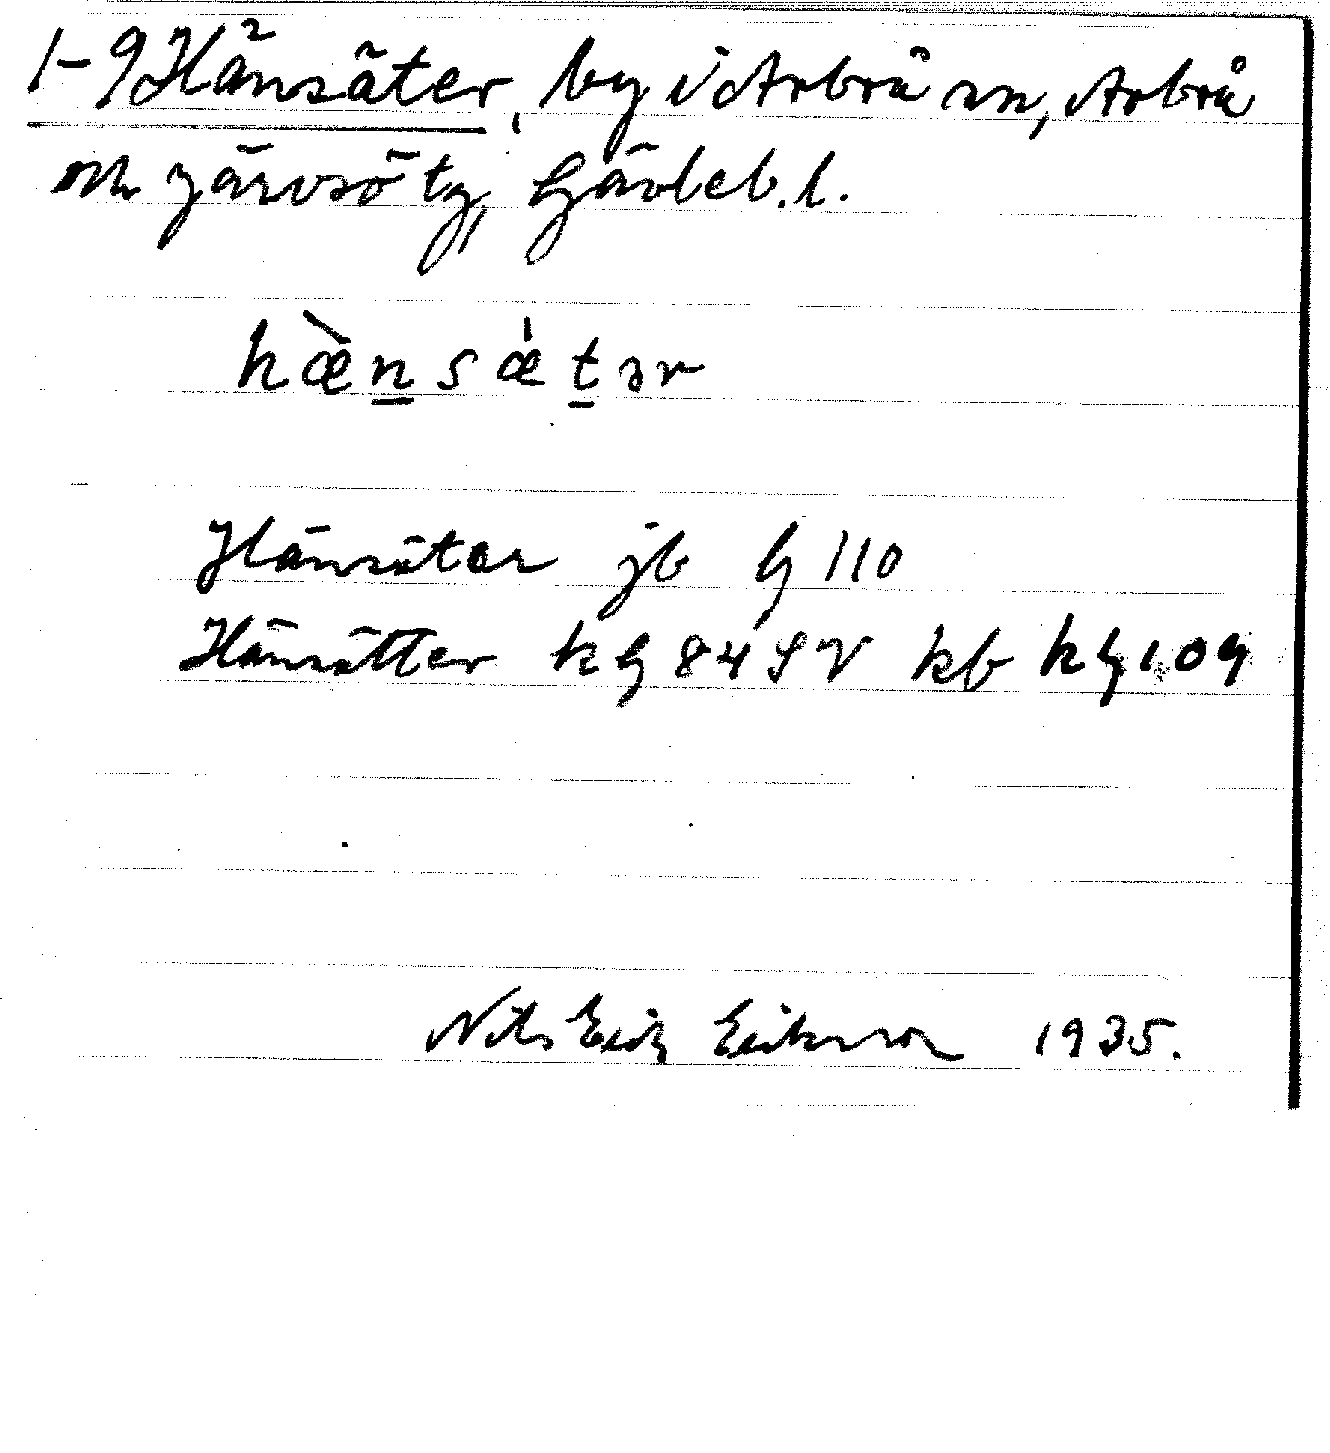 1-9 Hänsäter, by i Arbrå sn, Arbrå
och Järvsö tg, Gävleb. l.
hæ̀nsæ̀tər
Hänsäter jb G 110
Hänsätter k G 84 SV kb k G 109
Nils Erik Eriksson 1935.